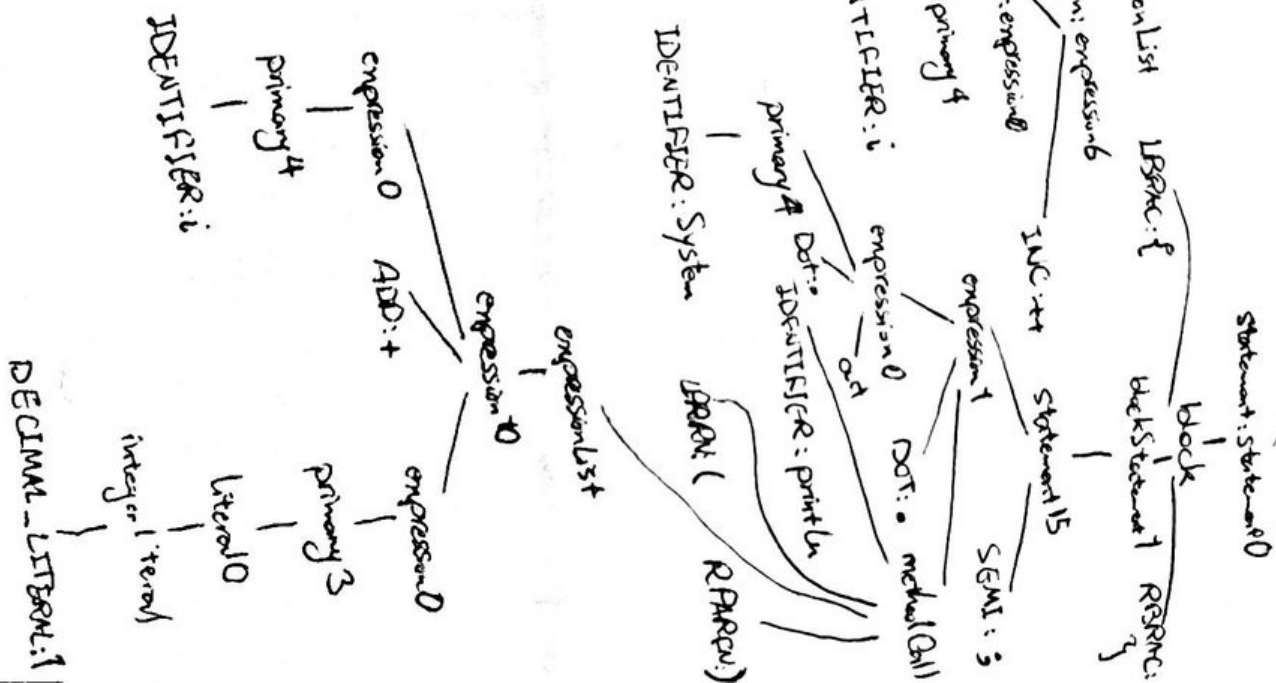 statement:statement0
block
LBRAC:{
blockStatement1
RBRAC:}
onList
n:expression6
:expression0
primary4
NTIFIER:i
INC:++
statement15
expression1
SEMI:;
expression0
DOT:.
methodCall
primary4
Dot:.
out
IDENTIFIER:System
IDENTIFIER:println
LPAREN:(
RPAREN:)
expressionList
expression10
expression0
ADD:+
expression0
primary4
primary3
IDENTIFIER:i
literal0
integerliteral
DECIMAL_LITERAL:1